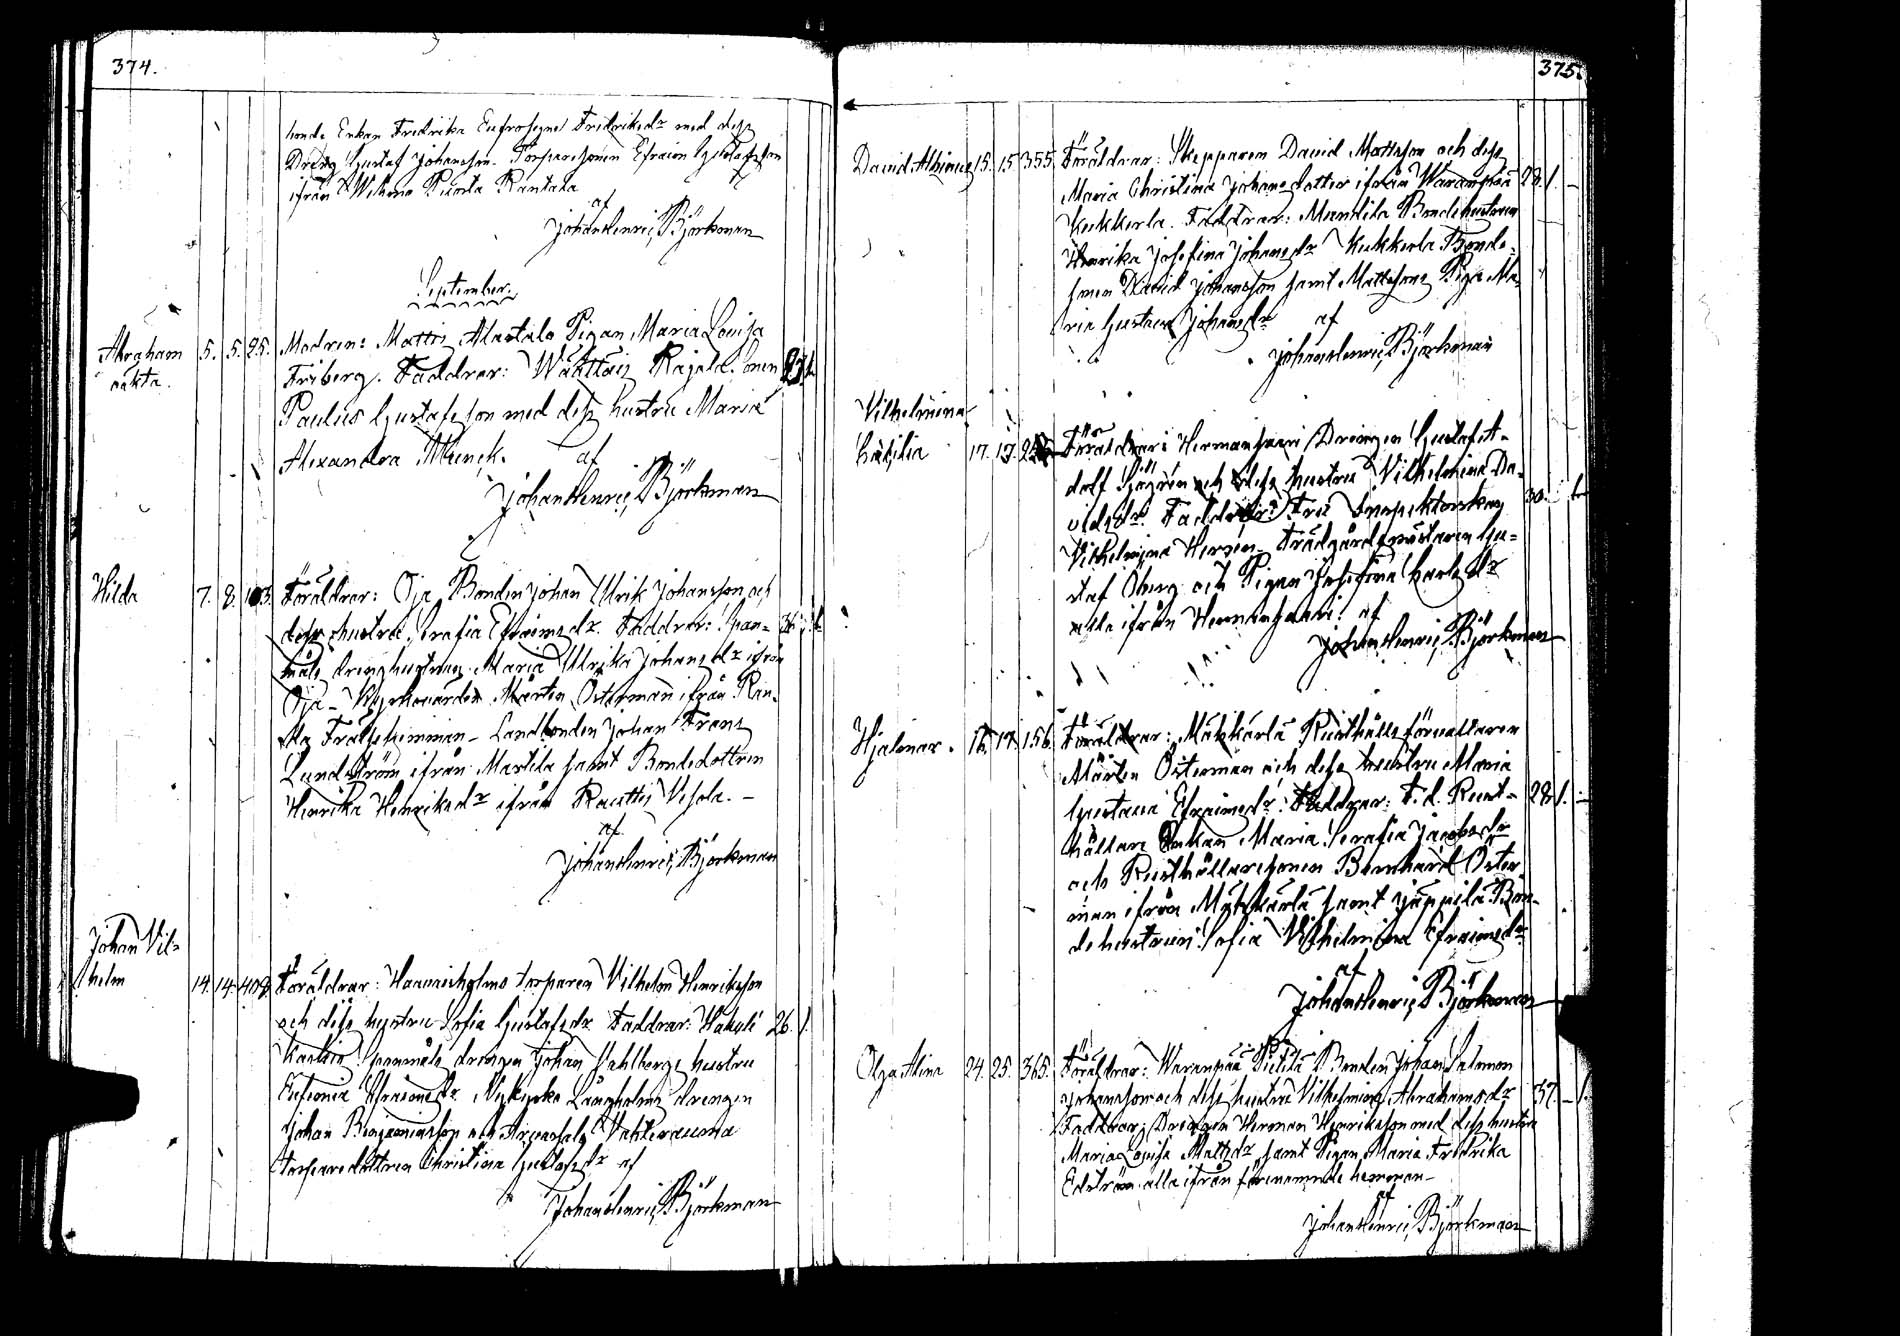 374.
honde Enkan Fredrika Eufrosyne Fredriksdr med dess
Dräng Gustaf Johansson. Torparesonen Efraim Gustafsson
ifrån Wihma Punta Rantala
af
Johan Henric Björkman
September.
Abraham 5. 5. 25. Modren: Mattis Alastalo Pigan Maria Lovisa
oäkta. Friberg. Faddrar: Rajala Sonen
Paulus Gustafsson med dess hustru Maria
Alexandra Munck. af
Johan Henric Björkman
Hilda 7. 8. 103. Föräldrar: Oja Bonden Johan Ulrik Johansson och
dess hustru Serafia Efraimsdr. Faddrar: Span- 36.
måls drenghustrun Maria Ulrika Johansdr ifrån
Oja - Kyrkovärden Mårten Österman ifrån Ran-
ka Frälsehemman - Landbonden Johan Frans
Lundström ifrån Martila samt Bondedottren
Henrika Henriksdr ifrån Rauttis Vesola. -
af
Johan Henric Björkman
Johan Vil-
helm 14. 14. 408. Föräldrar: torparen Vilhelm Henriksson
och dess hustru Sofia Gustafsdr Faddrar: 26. 1.
Spanmåls drengen Johan Vahlbergs hustru
Efraimsdr. Nykyrko Långholms drengen
Johan Benjaminsson och Vahterauma
torparedottren Christina Gustafsdr af
Johan Henric Björkman
375.
David Albinus 15. 15. 355. Föräldrar: Skepparen David Mattsson och dess
Maria Christina Johansdotter ifrån Waranpää 28. 1. -
Kukkerla. Faddrar: Mandila Bondehustrun
Henrika Josefina Johansdr Kukkerla Bonde-
sonen David Johansson samt Mattssons Piga Ma-
ria Gustava Johansdr af
Johan Henric Björkman
Vilhelmina
Cecilia 17. 17. Föräldrar: Hermansaari Drengen Gustaf A-
dolf Sjögrén och dess hustru Vilhelmina Da-
vidsdr. Faddrar: Fru Inspektorskan 30.
Vilhelmina Hersén - Trädgårdsmästaren Gu-
staf Öberg och Pigan Josefina Carlsdr
alla ifrån Hermansaari. af
Johan Henric Björkman
Hjalmar. 16. 17. 156. Föräldrar: Mähkärlä Rusthållsförvaltaren
Mårten Österman och dess hustru Maria
Gustava Efraimsdr. Faddrar: F.d. Rust- 28. 1. -
hållare Enkan Maria Serafia Jacobsdr
och Rusthållaresonen Bernhard Öster-
man ifrån Mähkärlä samt Jäppilä Bon-
dehustrun Sofia Vilhelmina Efraimsdr
af
Johan Henric Björkman
Olga Alina 24. 25. 365. Föräldrar: Waranpää Pietilä Bonden Johan Salomon
Johansson och dess hustru Vilhelmina Abrahamsdr 37. - 1.
Faddrar, Drengen Herman Henriksson med dess hustru
Maria Lovisa Mattsdr samt Pigan Maria Fredrika
Edström alla ifrån förenämnde hemman -
af
Johan Henric Björkman